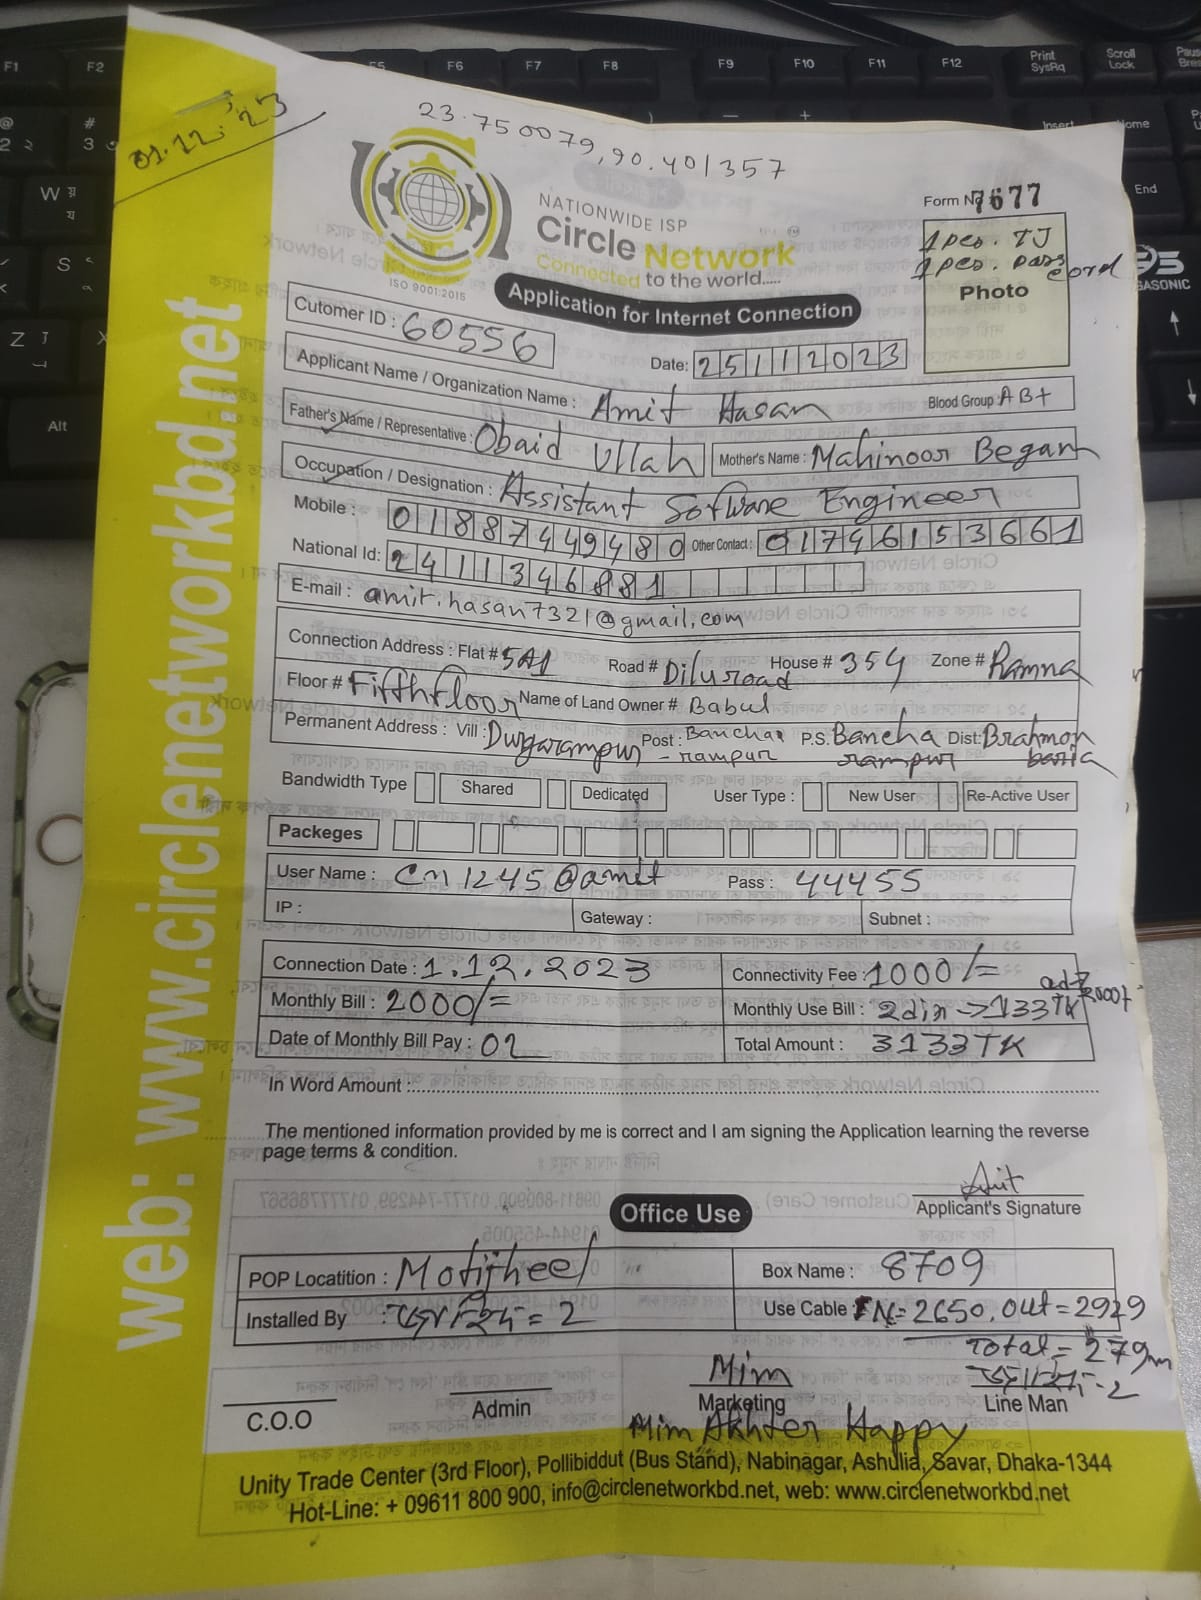 01.12.'23
23.750079, 90.401357
NATIONWIDE ISP
Circle Network
Connected to the world.....
ISO 9001:2015
Form No 7677
1 pcs. TJ
1 pcs. pass cord
Photo
Application for Internet Connection
Cutomer ID : 60556
Date: 25112023
Applicant Name / Organization Name : Amit Hasan
Blood Group : AB+
Father's Name / Representative : Obaid Ullah
Mother's Name : Mahinoor Begam
Occupation / Designation : Assistant Software Engineer
Mobile : 01887449480 Other Contact : 01746153661
National Id: 2411346881
E-mail : amit.hasan7321@gmail.com
Connection Address : Flat # 5A1 Road # Diluroad House # 354 Zone # Ramna
Floor # Fifthfloor Name of Land Owner # Babul
Permanent Address : Vill : Durgarampur Post : Banchar-rampur P.S. Bancha rampur Dist: Brahmon baria
Bandwidth Type Shared Dedicated User Type : New User Re-Active User
Packeges
User Name : Cn1245@amit Pass : 44455
IP : Gateway : Subnet :
Connection Date : 1.12.2023 Connectivity Fee : 1000/=
Monthly Bill : 2000/= Monthly Use Bill : 2din → 133TK
Date of Monthly Bill Pay : 02 Total Amount : 3133TK
In Word Amount :
The mentioned information provided by me is correct and I am signing the Application learning the reverse
page terms & condition.
Amit
Applicant's Signature
Office Use
POP Locatition : Motijheel Box Name : 8709
Installed By : = 2 Use Cable : IN= 2650, out = 2929
Total = 279m
Mim
C.O.O Admin Marketing Line Man
Mim Akhter Happy
Unity Trade Center (3rd Floor), Pollibiddut (Bus Stand), Nabinagar, Ashulia, Savar, Dhaka-1344
Hot-Line: + 09611 800 900, info@circlenetworkbd.net, web: www.circlenetworkbd.net
web: www.circlenetworkbd.net